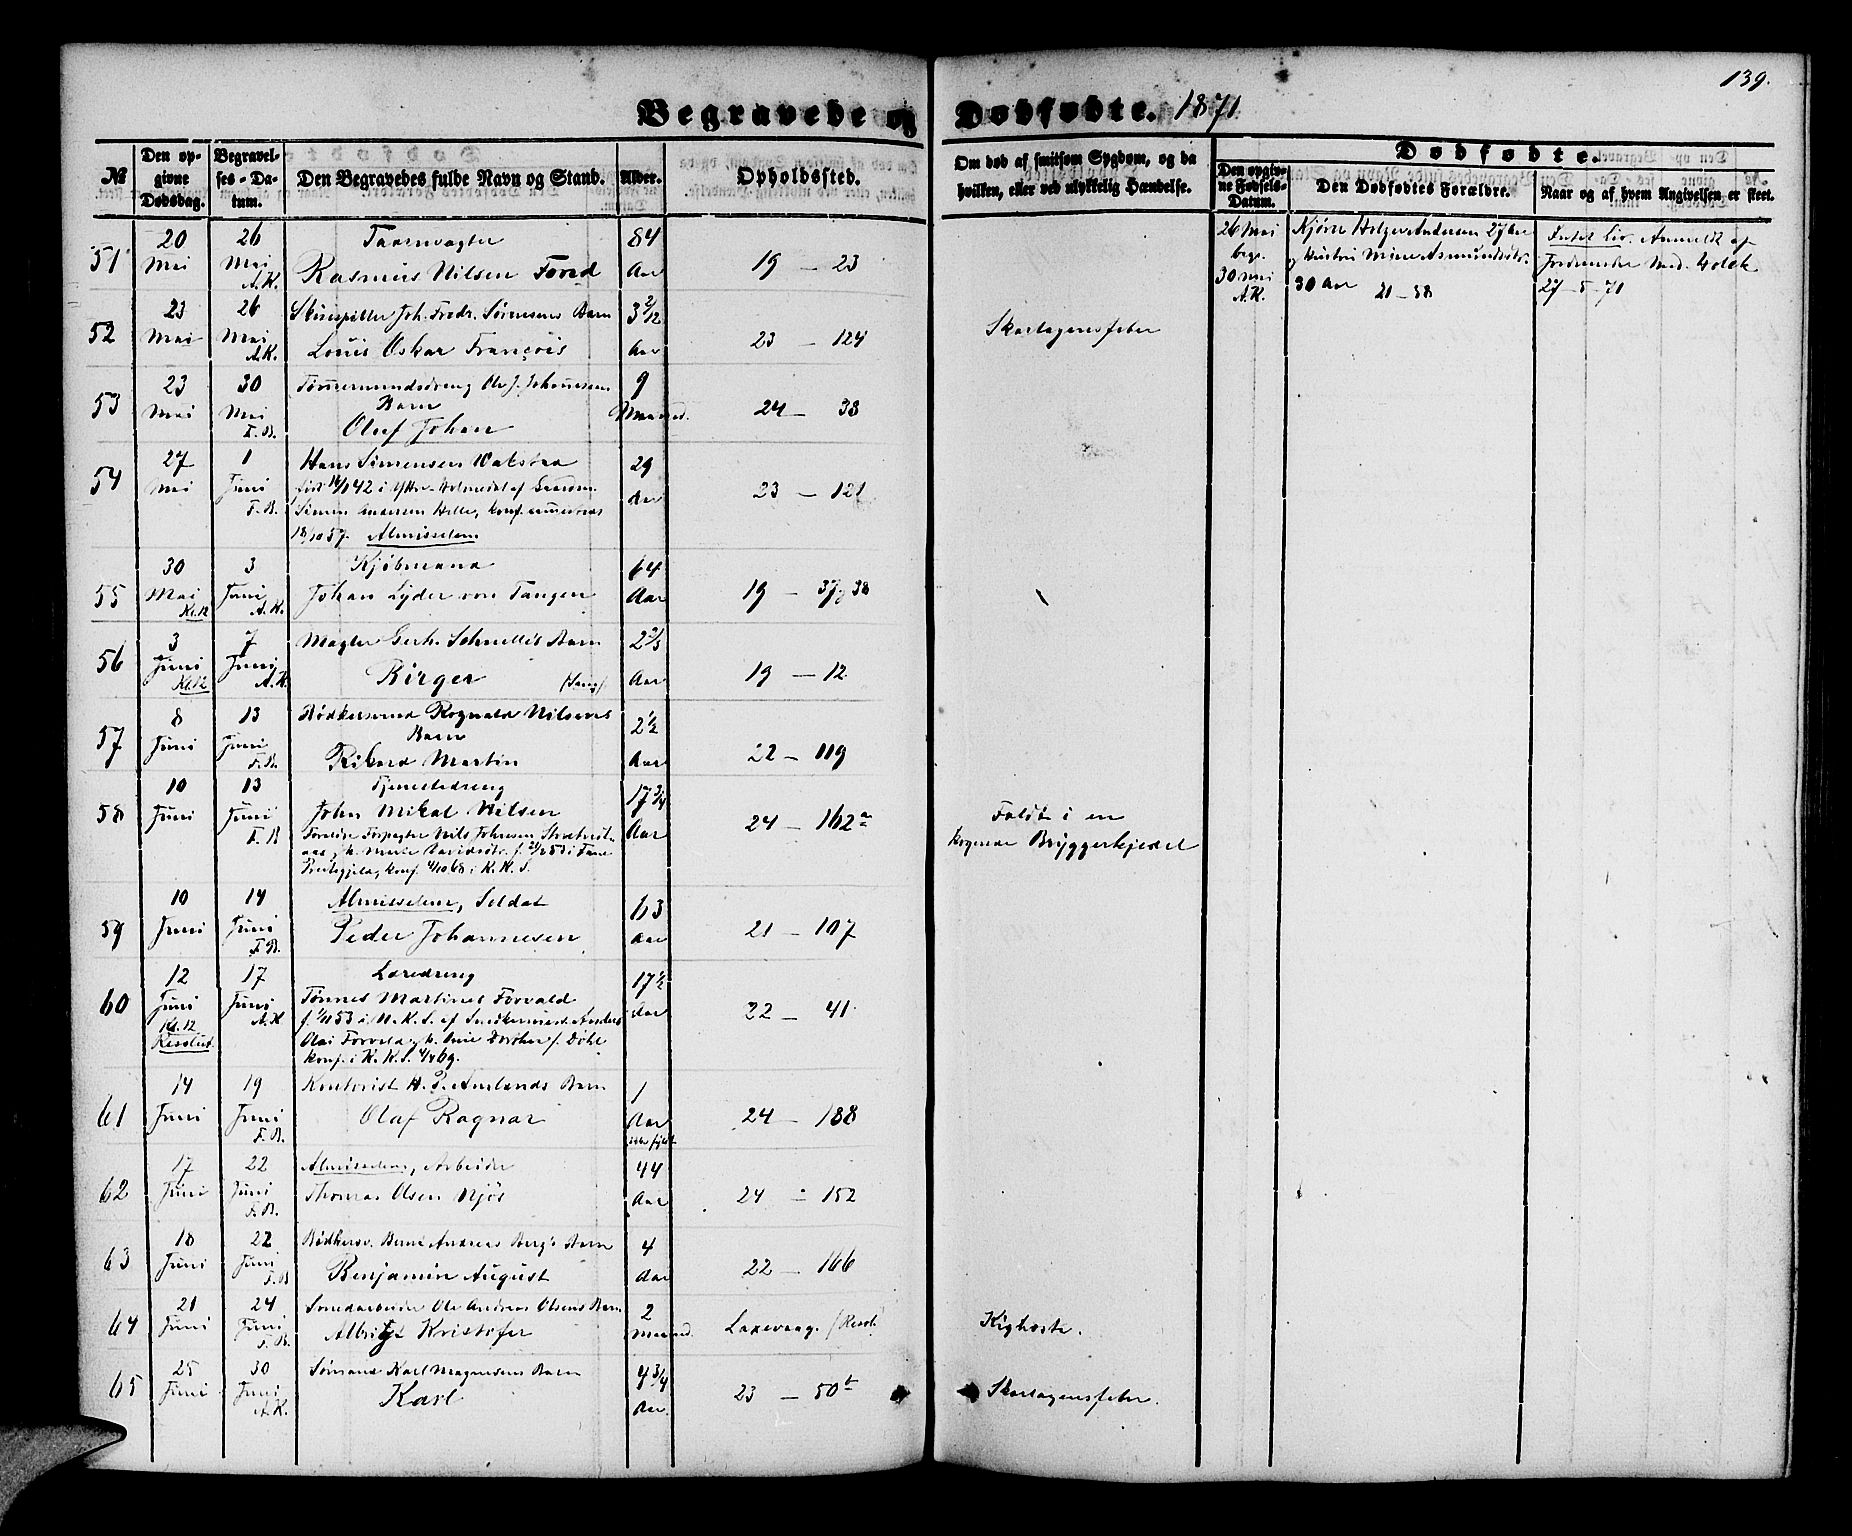 139.
Begravede og Dødfødte. 1871
№
Den opgivne Dødsdag.
Begravelses-Datum.
Den Begravedes fulde Navn og Stand.
Alder.
Opholdssted.
Om død af smitsom Sygdom, og da hvilken, eller ved ulykkelig Hændelse.
Dødfødte.
Den opgivne Fødsels-Datum.
Den Dødfødtes Forældre.
Naar og af hvem Angivelsen er skeet.
51 20 Mai 26 Mai A.K.
Taarnvægter
Rasmus Nilsen Forad
84 Aar 19 – 23
26 Mai begr. 30 Mai A.K.
Kjører Holger Andersen 27
og Hustru Mine Asmundsdtr.
30 Aar 21 – 58
Intet Liv. Anmeldt af
Jordemoder Mad.
27 – 5 – 71
52 23 Mai 26 Mai A.K.
Skuespiller Joh. Fredr. Sørensens Barn
Louis Oskar François
3 2/12 Aar 23 – 124 Skarlagensfeber
53 23 Mai 30 Mai F.B.
Tømmermandsdreng Ole J. Johannesens
Barn
Oluf Johan
9 Maaned. 24 – 38
54 27 Mai 1 Juni F.B.
Hans Simensen Vakstad
Simen Andersen Hille, konf.
Almisselem
29 Aar 23 – 121
55 30 Mai Kl. 12 3 Juni A.K.
Kjøbmand
Johan Lyder von Tangen
64 Aar 19 – 37 og 38
56 3 Juni Kl. 12 7 Juni A.K.
Mægler Gerh. Schnelles Barn
Birger
2 2/3 Aar 19 – 12
57 8 Juni 13 Juni F.B.
Bødkersvend Rognald Nilsens
Barn
Rikard Martin
2 1/2 Aar 22 – 119
58 10 Juni 13 Juni F.B.
Tjenestedreng
John Mikal Nilsen
Forældre Forpagter Nils Johnsen
Præstegjeld, konf. 4/10 68 i K.K.S.
17 3/4 Aar 24 – 162a
Faldt i en
kogende Bryggerkjedel
59 10 Juni 14 Juni F.B.
Almisselem, Soldat
Peder Johannesen
63 Aar 21 – 107
60 12 Juni Kl. 12 17 Juni A.K.
Læredreng
Tønnes Martinus Forvald
f. i N.K.S. af Snedkermest. Anders
Olai Forvald og h. Anne Dorthea f. Døhl
konf. i K.K.S. 4/4 69.
17 1/2 Aar 22 – 41
61 14 Juni 19 Juni F.B.
Kontorist H. P. Aurlands Barn
Olaf Ragnar
1 Aar ikke fyldt 24 – 188
62 17 Juni 22 Juni F.B.
Almisselem, Arbeider
Thomas Olsen Njøs
44 Aar 24 – 152
63 18 Juni 22 Juni F.B.
Bødkersv. Bernt Andreas Berg's Barn
Benjamin August
4 Aar 22 – 166
64 21 Juni 24 Juni F.B.
Smedarbeider Ole Andreas Olsens Barn
Albrigt Kristofer
2 Maaned. Laxevaag. Kighoste.
65 25 Juni 30 Juni A.K.
Sømand Karl Magnesens Barn
Karl
4 3/4 Aar. 23 – 50b Skarlagensfeber.